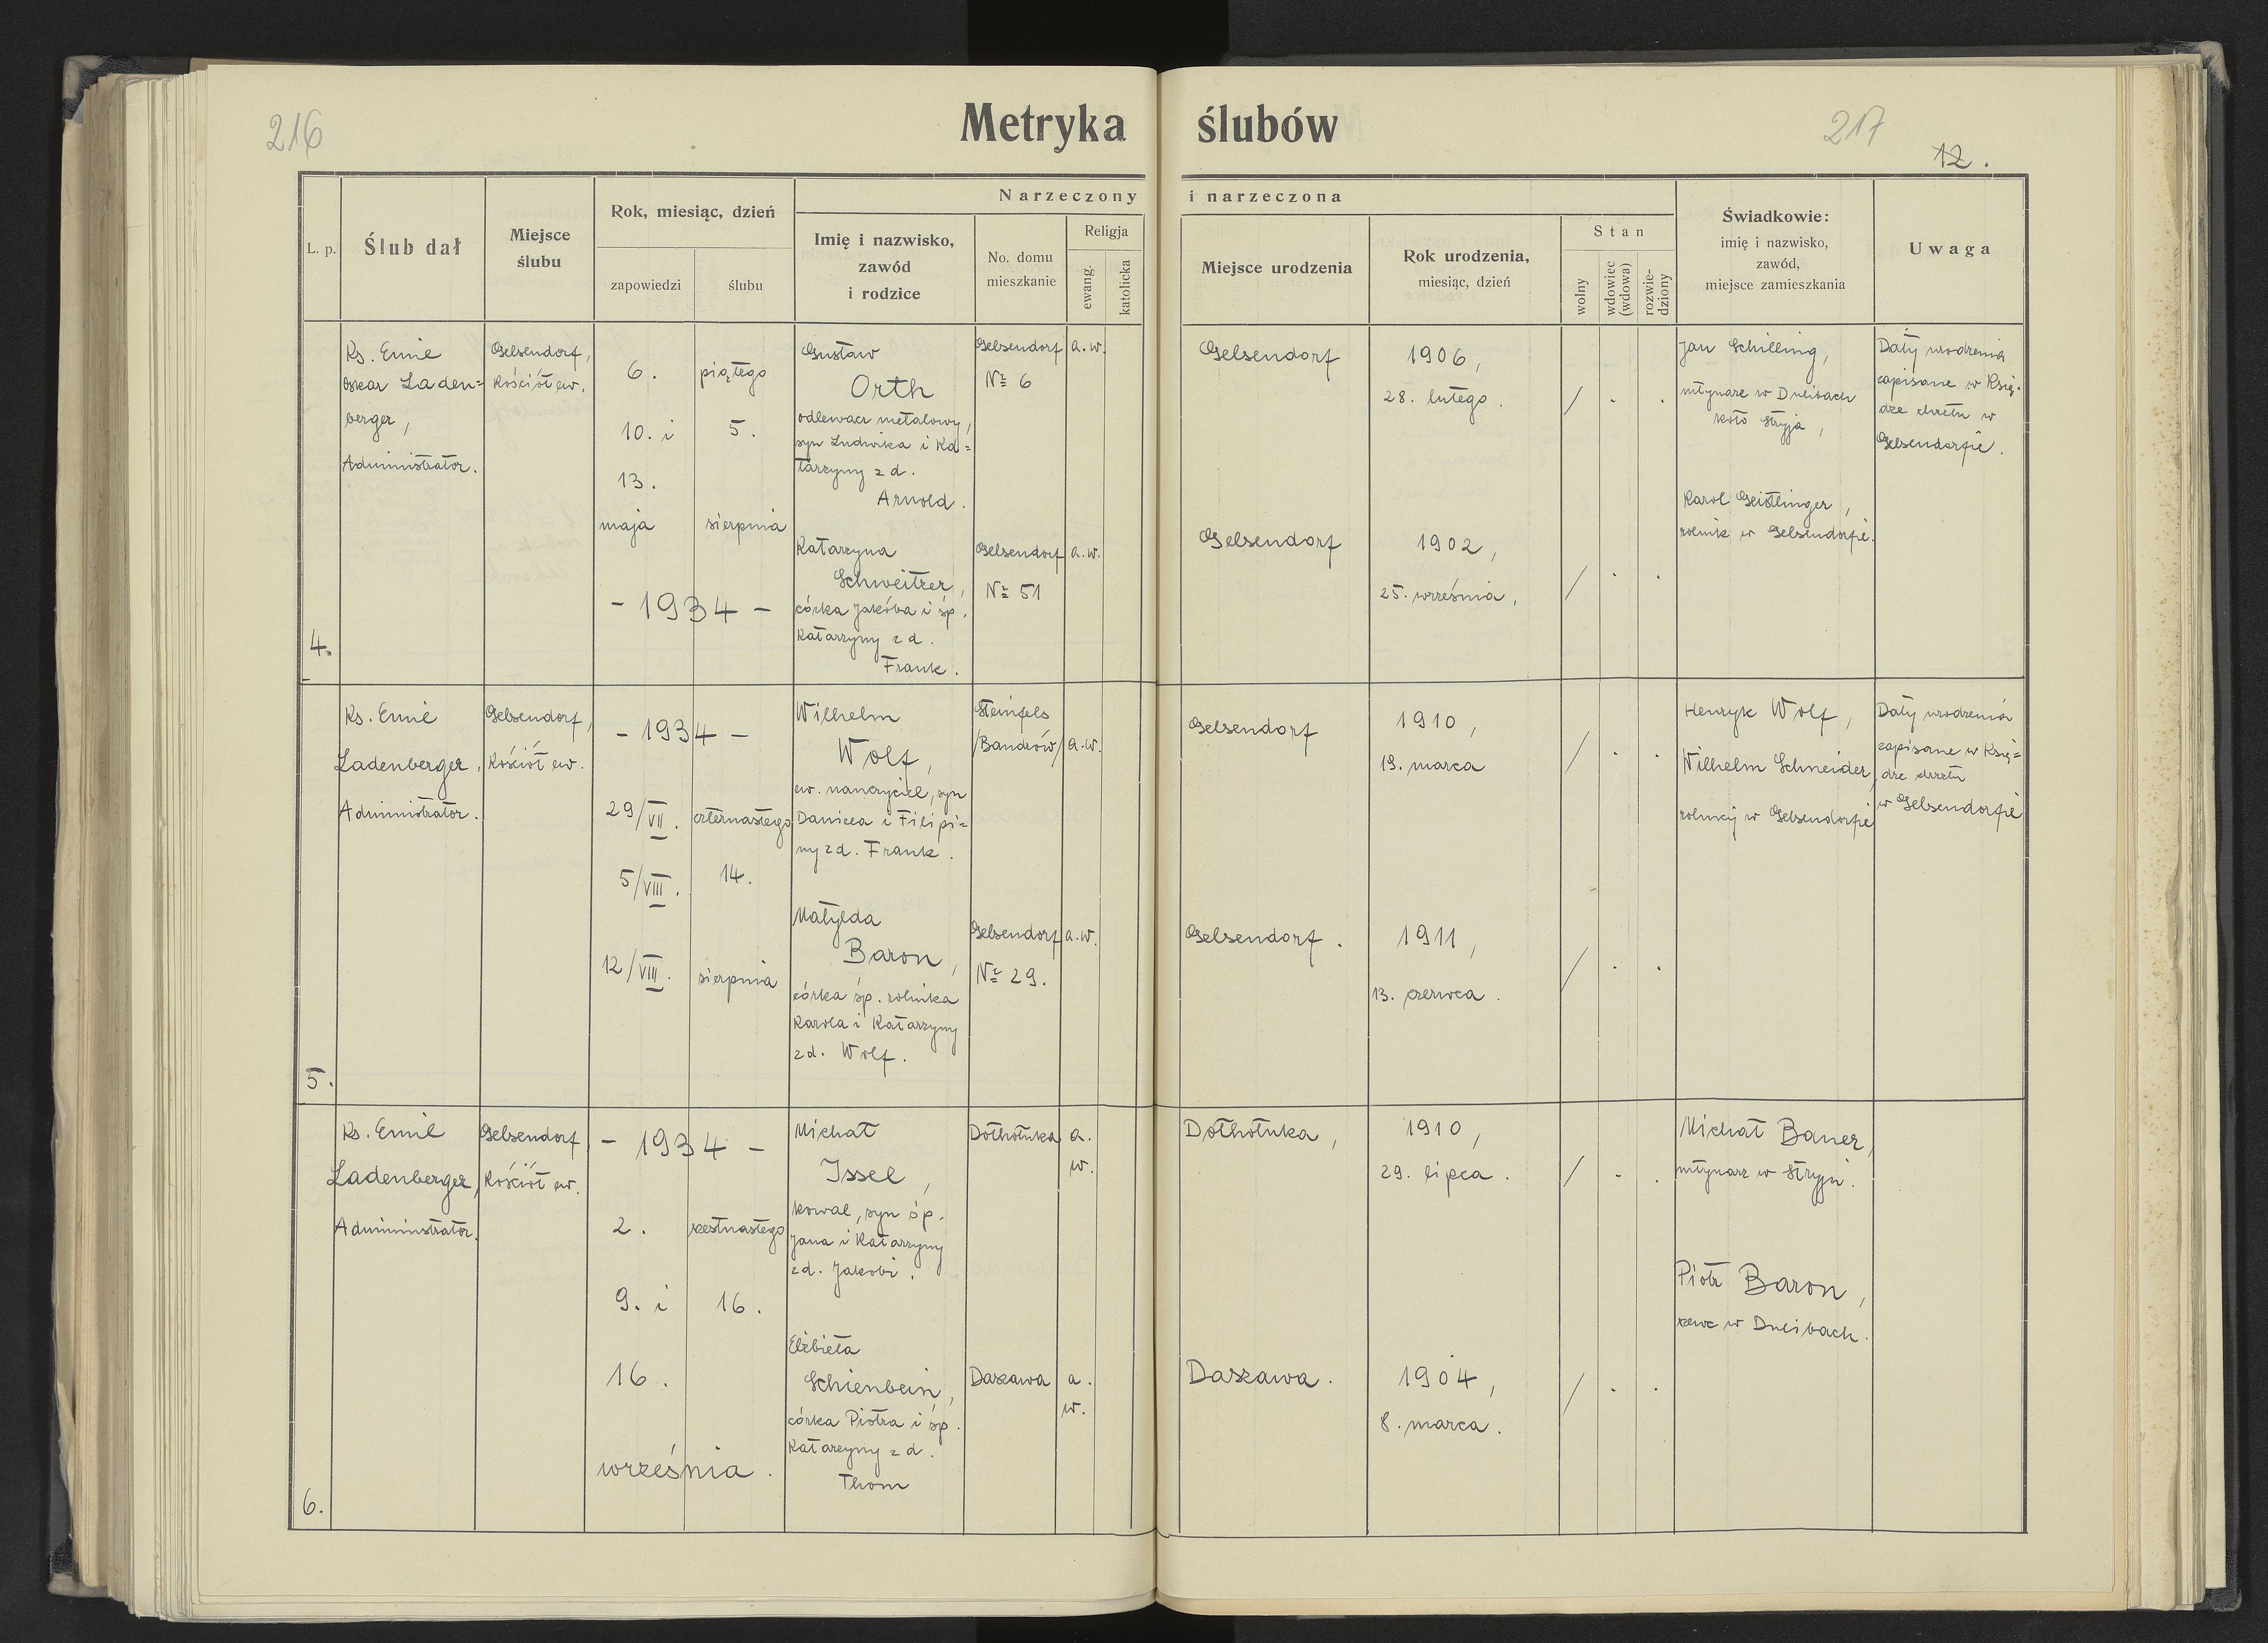 216
Metryka ślubów
217
12.
L. p.
Ślub dał
Miejsce
ślubu
Rok, miesiąc, dzień
zapowiedzi
ślubu
Narzeczony i narzeczona
Imię i nazwisko,
zawód
i rodzice
No. domu
mieszkanie
Religja
ewang.
katolicka
Miejsce urodzenia
Rok urodzenia,
miesiąc, dzień
Stan
wolny
wdowiec
(wdowa)
rozwie-
dziony
Świadkowie:
imię i nazwisko,
zawód,
miejsce zamieszkania
Uwaga
4.
Ks. Emil
Oskar Laden=
berger,
Administrator.
Gelsendorf,
Kościół ew.
6.
10. i
13.
maja
piątego
5.
sierpnia
- 1934 -
Gustaw
Orth
odlewacz metalowy,
syn Ludwika i Ka=
tarzyny z d.
Arnold.
Gelsendorf
№ 6
a.w.
Gelsendorf
1906,
28. lutego.
/ . .
Katarzyna
Schweitzer,
córka Jakóba i śp.
Katarzyny z d.
Frank.
Gelsendorf
№ 51
a.w.
Gelsendorf
1902,
25. września,
/ . .
Jan Schilling,
młynarz w Dulibach
koło Stryja,
Karol Geistlinger,
rolnik w Gelsendorfie.
Daty urodzenia
zapisane w Księ-
dze chrztu w
Gelsendorfie.
5.
Ks. Emil
Ladenberger,
Administrator.
Gelsendorf,
Kościół ew.
- 1934 -
29/VII.
5/VIII.
12/VIII.
czternastego
14.
sierpnia
Wilhelm
Wolf,
ew. nauczyciel, syn
Daniela i Filipi=
ny z d. Frank.
Steinfels
/Bandrów/
a.w.
Gelsendorf
1910,
19. marca
/ . .
Matylda
Baron,
córka śp. rolnika
Karola i Katarzyny
z d. Wolf.
Gelsendorf
№ 29.
a.w.
Gelsendorf.
1911,
13. czerwca.
/ . .
Henryk Wolf,
Wilhelm Schneider,
rolnicy w Gelsendorfie
Daty urodzenia
zapisane w Księ=
dze chrztu
w Gelsendorfie
6.
Ks. Emil
Ladenberger,
Administrator.
Gelsendorf,
Kościół ew.
- 1934 -
2.
9. i
16.
września.
szestnastego
16.
Michał
Issel,
kowal, syn śp.
Jana i Katarzyny
z d. Jakobi.
Dołhołuka
a.
w.
Dołhołuka,
1910,
29. lipca.
/ . .
Elżbieta
Schienbein,
córka Piotra i śp.
Katarzyny z d.
Thom
Daszawa
a.
w.
Daszawa.
1904,
8. marca.
/ . .
Michał Bauer,
młynarz w Stryju.
Piotr Baron,
szewc w Dulibach.